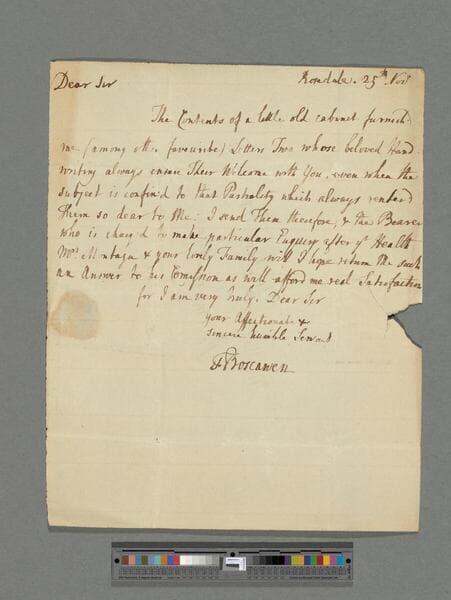 Rosedale. 25th Nov
Dear Sir
The Contents of a little old cabinet furnish'd
me (among othr. favourite) Letters Two whose beloved Hand
writing always ensure Their Welcome with You, even when the
subject is confin'd to that Partiality which always render'd
Them so dear to Me: I send Them therefore, & the Bearer
who is charg'd to make particular Enquiry after ye Health
Mrs Montagu & your lovely Family will I hope return Me such
an Answer to his Comission as will afford me real Satisfaction
for I am very truly. Dear Sir
your Affectionate &
sincere humble Servant
FBoscawen